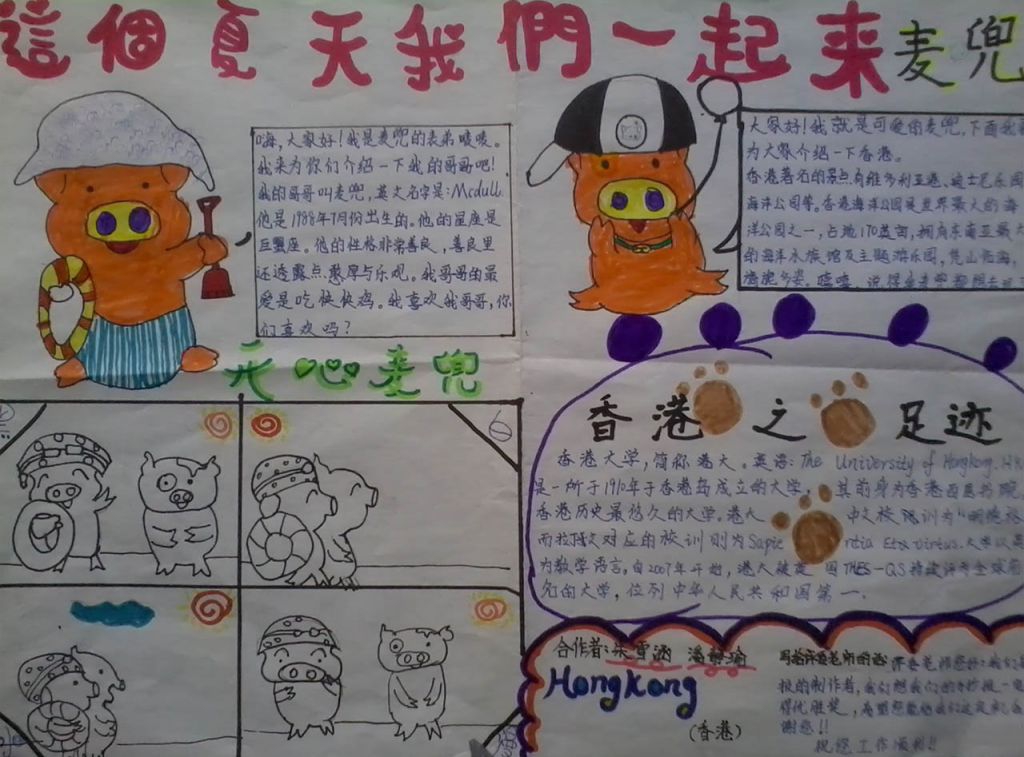 這個夏天我們一起来麦兜
嗨,大家好!我是麦兜的表弟唛唛。
我来为你们介绍一下我的哥哥吧!
我的哥哥叫麦兜,英文名字是:Mcdull
他是1988年7月份出生的。他的星座是
巨蟹座。他的性格非常善良,善良里
还透露点憨厚与乐观。我哥哥的最
爱是吃快快鸡。我喜欢我哥哥,你
们喜欢吗?
大家好!我就是可爱的麦兜,下面我
为大家介绍一下香港。
香港著名的景点有维多利亚港、迪士尼乐园
海洋公园等。香港海洋公园是世界最大的海
洋公园之一,占地170英亩,拥有东南亚最大
的海洋水族馆及主题游乐园,凭山临海,
旖旎多姿。
开心麦兜
6
香港之足迹
香港大学,简称港大。英语:The University of Hongkong. HK
是一所于1910年于香港岛成立的大学,其前身为香港西医书院
香港历史最悠久的大学。港大中文校训为"明德格
而拉丁文对应的校训则为Sapientia Et Virtus.大学以英
为教学语言,自2007年开始,港大被英国THES-QS
的大学,位列中华人民共和国第一.
合作者:朱雪涵
Hongkong
(香港)
报的制作者,我们想我们的手抄报一定
得优胜奖,希望您能给我们这次机会
谢您!!
祝您工作顺利!!